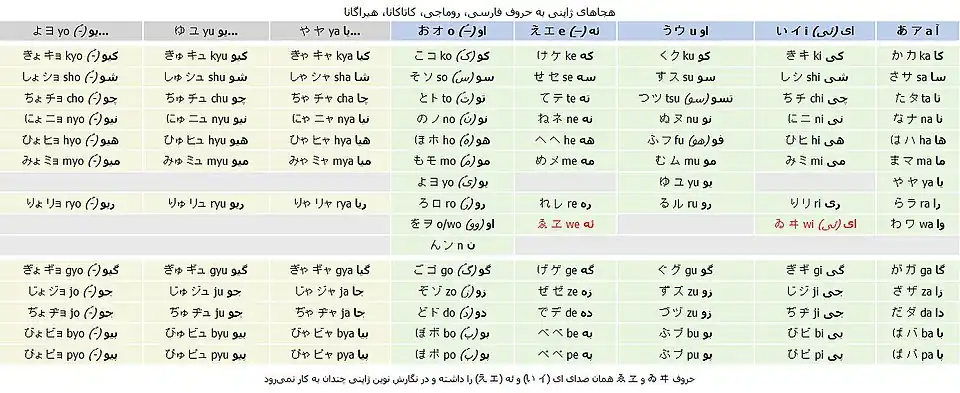 هجاهای ژاپنی به حروف فارسی، روماجی، کاتاکانا، هیراگانا
آ あ ア a	ای (ئی) い イ i	او う ウ u	ئه (ـِ) え エ e	او (ـُ) お オ o	یا... や ヤ ya	یو... ゆ ユ yu	یو (ـُ)... よ ヨ yo
کا か カ ka	کی き キ ki	کو く ク ku	که け ケ ke	کو (کُ) こ コ ko	کیا きゃ キャ kya	کیو きゅ キュ kyu	کیو (ـُ) きょ キョ kyo
سا さ サ sa	شی し シ shi	سو す ス su	سه せ セ se	سو (سُ) そ ソ so	شا しゃ シャ sha	شو しゅ シュ shu	شو (ـُ) しょ ショ sho
تا た タ ta	چی ち チ chi	تسو (سو) つ ツ tsu	ته て テ te	تو (تُ) と ト to	چا ちゃ チャ cha	چو ちゅ チュ chu	چو (ـُ) ちょ チョ cho
نا な ナ na	نی に ニ ni	نو ぬ ヌ nu	نه ね ネ ne	نو (نُ) の ノ no	نیا にゃ ニャ nya	نیو にゅ ニュ nyu	نیو (ـُ) にょ ニョ nyo
ها は ハ ha	هی ひ ヒ hi	فو (هو) ふ フ fu	هه へ ヘ he	هو (هُ) ほ ホ ho	هیا ひゃ ヒャ hya	هیو ひゅ ヒュ hyu	هیو (ـُ) ひょ ヒョ hyo
ما ま マ ma	می み ミ mi	مو む ム mu	مه め メ me	مو (مُ) も モ mo	میا みゃ ミャ mya	میو みゅ ミュ myu	میو (ـُ) みょ ミョ myo
یا や ヤ ya	یو ゆ ユ yu	یو (یُ) よ ヨ yo
را ら ラ ra	ری り リ ri	رو る ル ru	ره れ レ re	رو (رُ) ろ ロ ro	ریا りゃ リャ rya	ریو りゅ リュ ryu	ریو (ـُ) りょ リョ ryo
وا わ ワ wa	ای (ئی) ゐ ヰ wi	ئه ゑ ヱ we	او (وو) を ヲ o/wo
ن ん ン n
گا が ガ ga	گی ぎ ギ gi	گو ぐ グ gu	گه げ ゲ ge	گو (گُ) ご ゴ go	گیا ぎゃ ギャ gya	گیو ぎゅ ギュ gyu	گیو (ـُ) ぎょ ギョ gyo
زا ざ ザ za	جی じ ジ ji	زو ず ズ zu	زه ぜ ゼ ze	زو (زُ) ぞ ゾ zo	جا じゃ ジャ ja	جو じゅ ジュ ju	جو (ـُ) じょ ジョ jo
دا だ ダ da	جی ぢ ヂ ji	زو づ ヅ zu	ده で デ de	دو (دُ) ど ド do	جا ぢゃ ヂャ ja	جو ぢゅ ヂュ ju	جو (ـُ) ぢょ ヂョ jo
با ば バ ba	بی び ビ bi	بو ぶ ブ bu	به べ ベ be	بو (بُ) ぼ ボ bo	بیا びゃ ビャ bya	بیو びゅ ビュ byu	بیو (ـُ) びょ ビョ byo
پا ぱ パ pa	پی ぴ ピ pi	پو ぷ プ pu	په ぺ ペ pe	پو (پُ) ぽ ポ po	پیا ぴゃ ピャ pya	پیو ぴゅ ピュ pyu	پیو (ـُ) ぴょ ピョ pyo
حروف ゐ ヰ و ゑ ヱ همان صدای ای (い イ) و ئه (え エ) را داشته و در نگارش نوین ژاپنی چندان به کار نمی‌رود